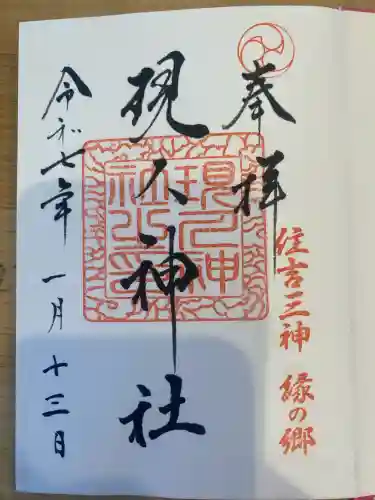 奉拝
住吉三神 縁の郷
現人神社
現人神社之印
令和七年 一月 十三日